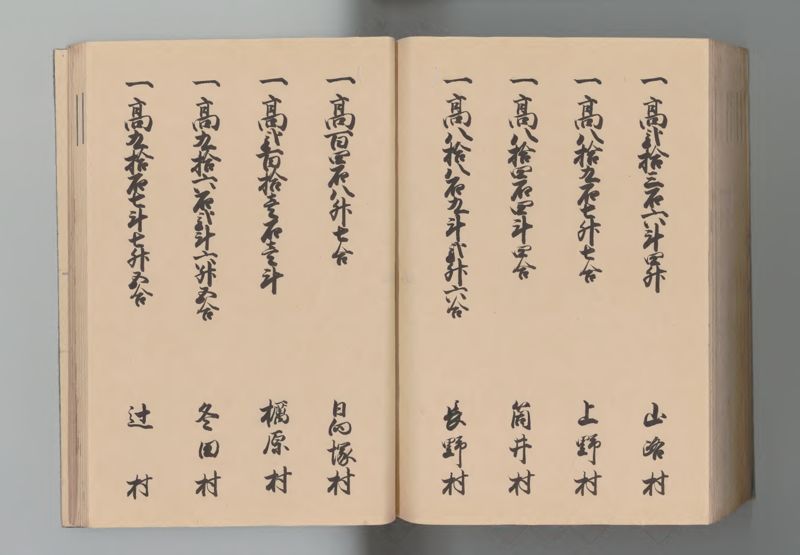 一高弐拾三石六斗四升 山路村
一高八拾九石七升七合 上野村
一高八拾四石四斗四合 筒井村
一高八拾八石九斗弐升六合 長野村
一高百四石八升七合 日向塚村
一高弐百拾壱石壱斗 梶原村
一高九拾六石弐斗六升五合 冬田村
一高九拾石七斗七升五合 辻村